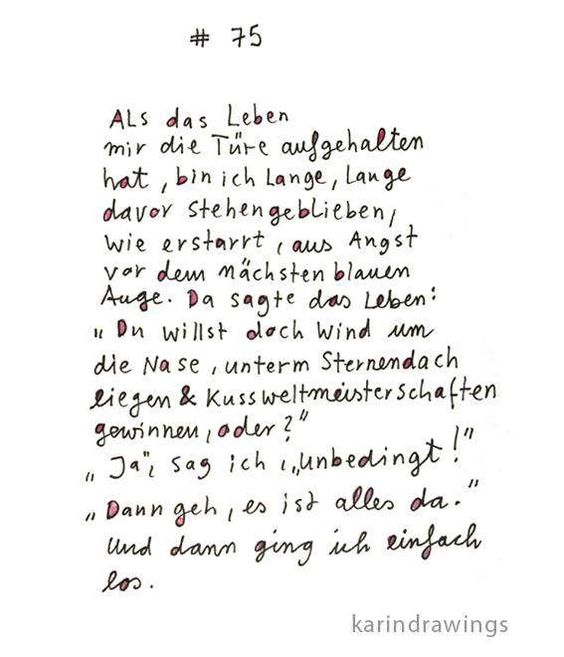 # 75
Als das Leben
mir die Türe aufgehalten
hat, bin ich lange, lange
davor stehengeblieben,
wie erstarrt, aus Angst
vor dem nächsten blauen
Auge. Da sagte das Leben:
„Du willst doch Wind um
die Nase, unterm Sternendach
liegen & Kussweltmeisterschaften
gewinnen, oder?"
„Ja", sag ich, „unbedingt!"
„Dann geh, es ist alles da."
Und dann ging ich einfach
los.
karindrawings